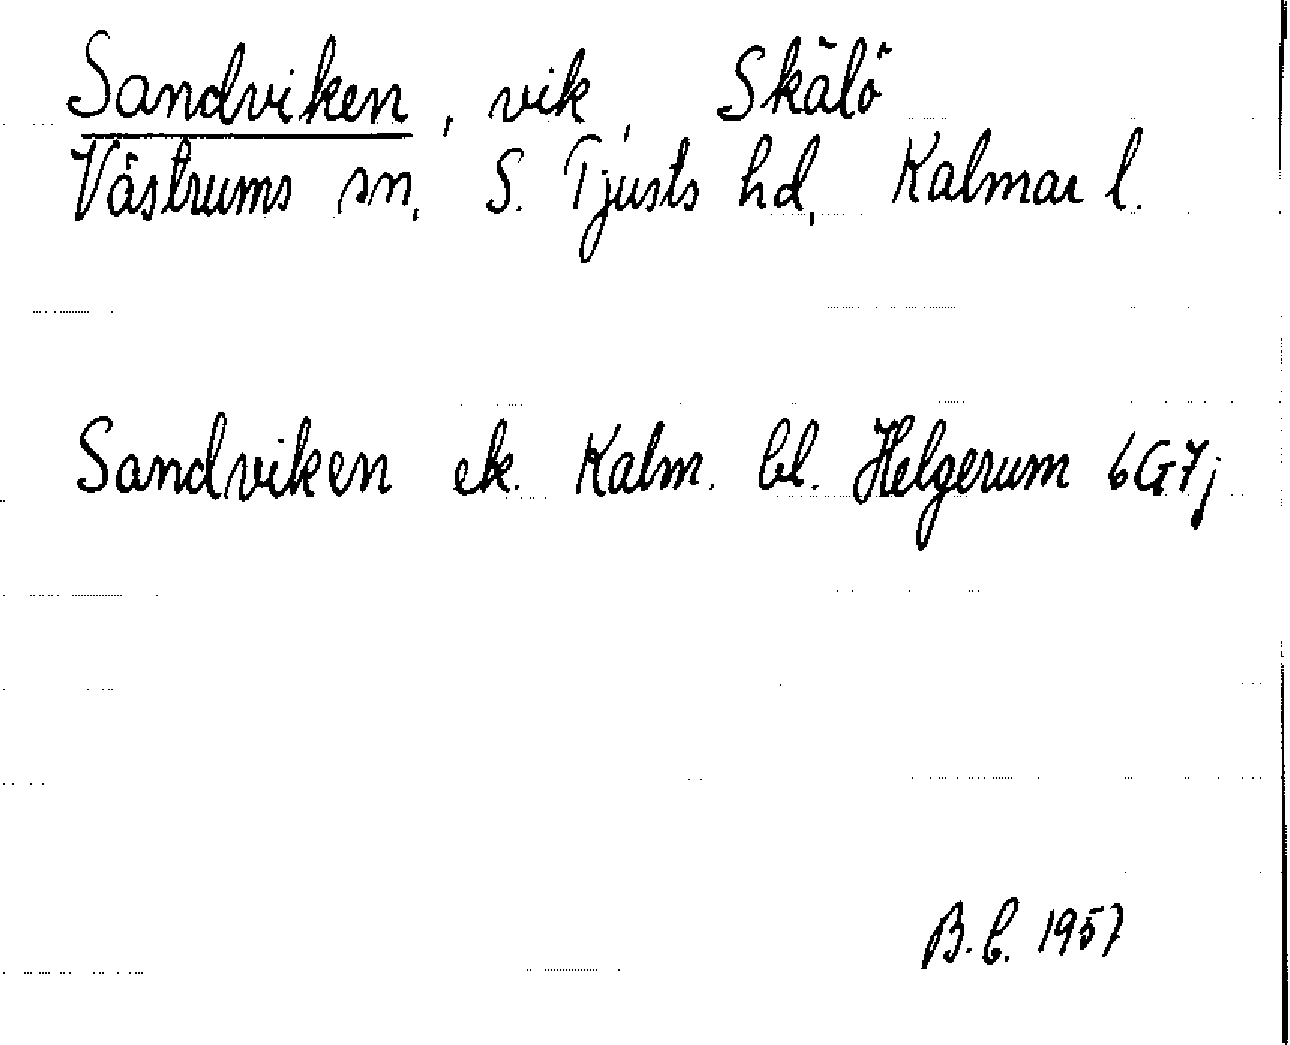 Sandviken, vik, Skälö
Västrums sn, S. Tjusts hd, Kalmar l.
Sandviken ek. Kalm. bl. Helgerum 6G7j
B.L. 1957